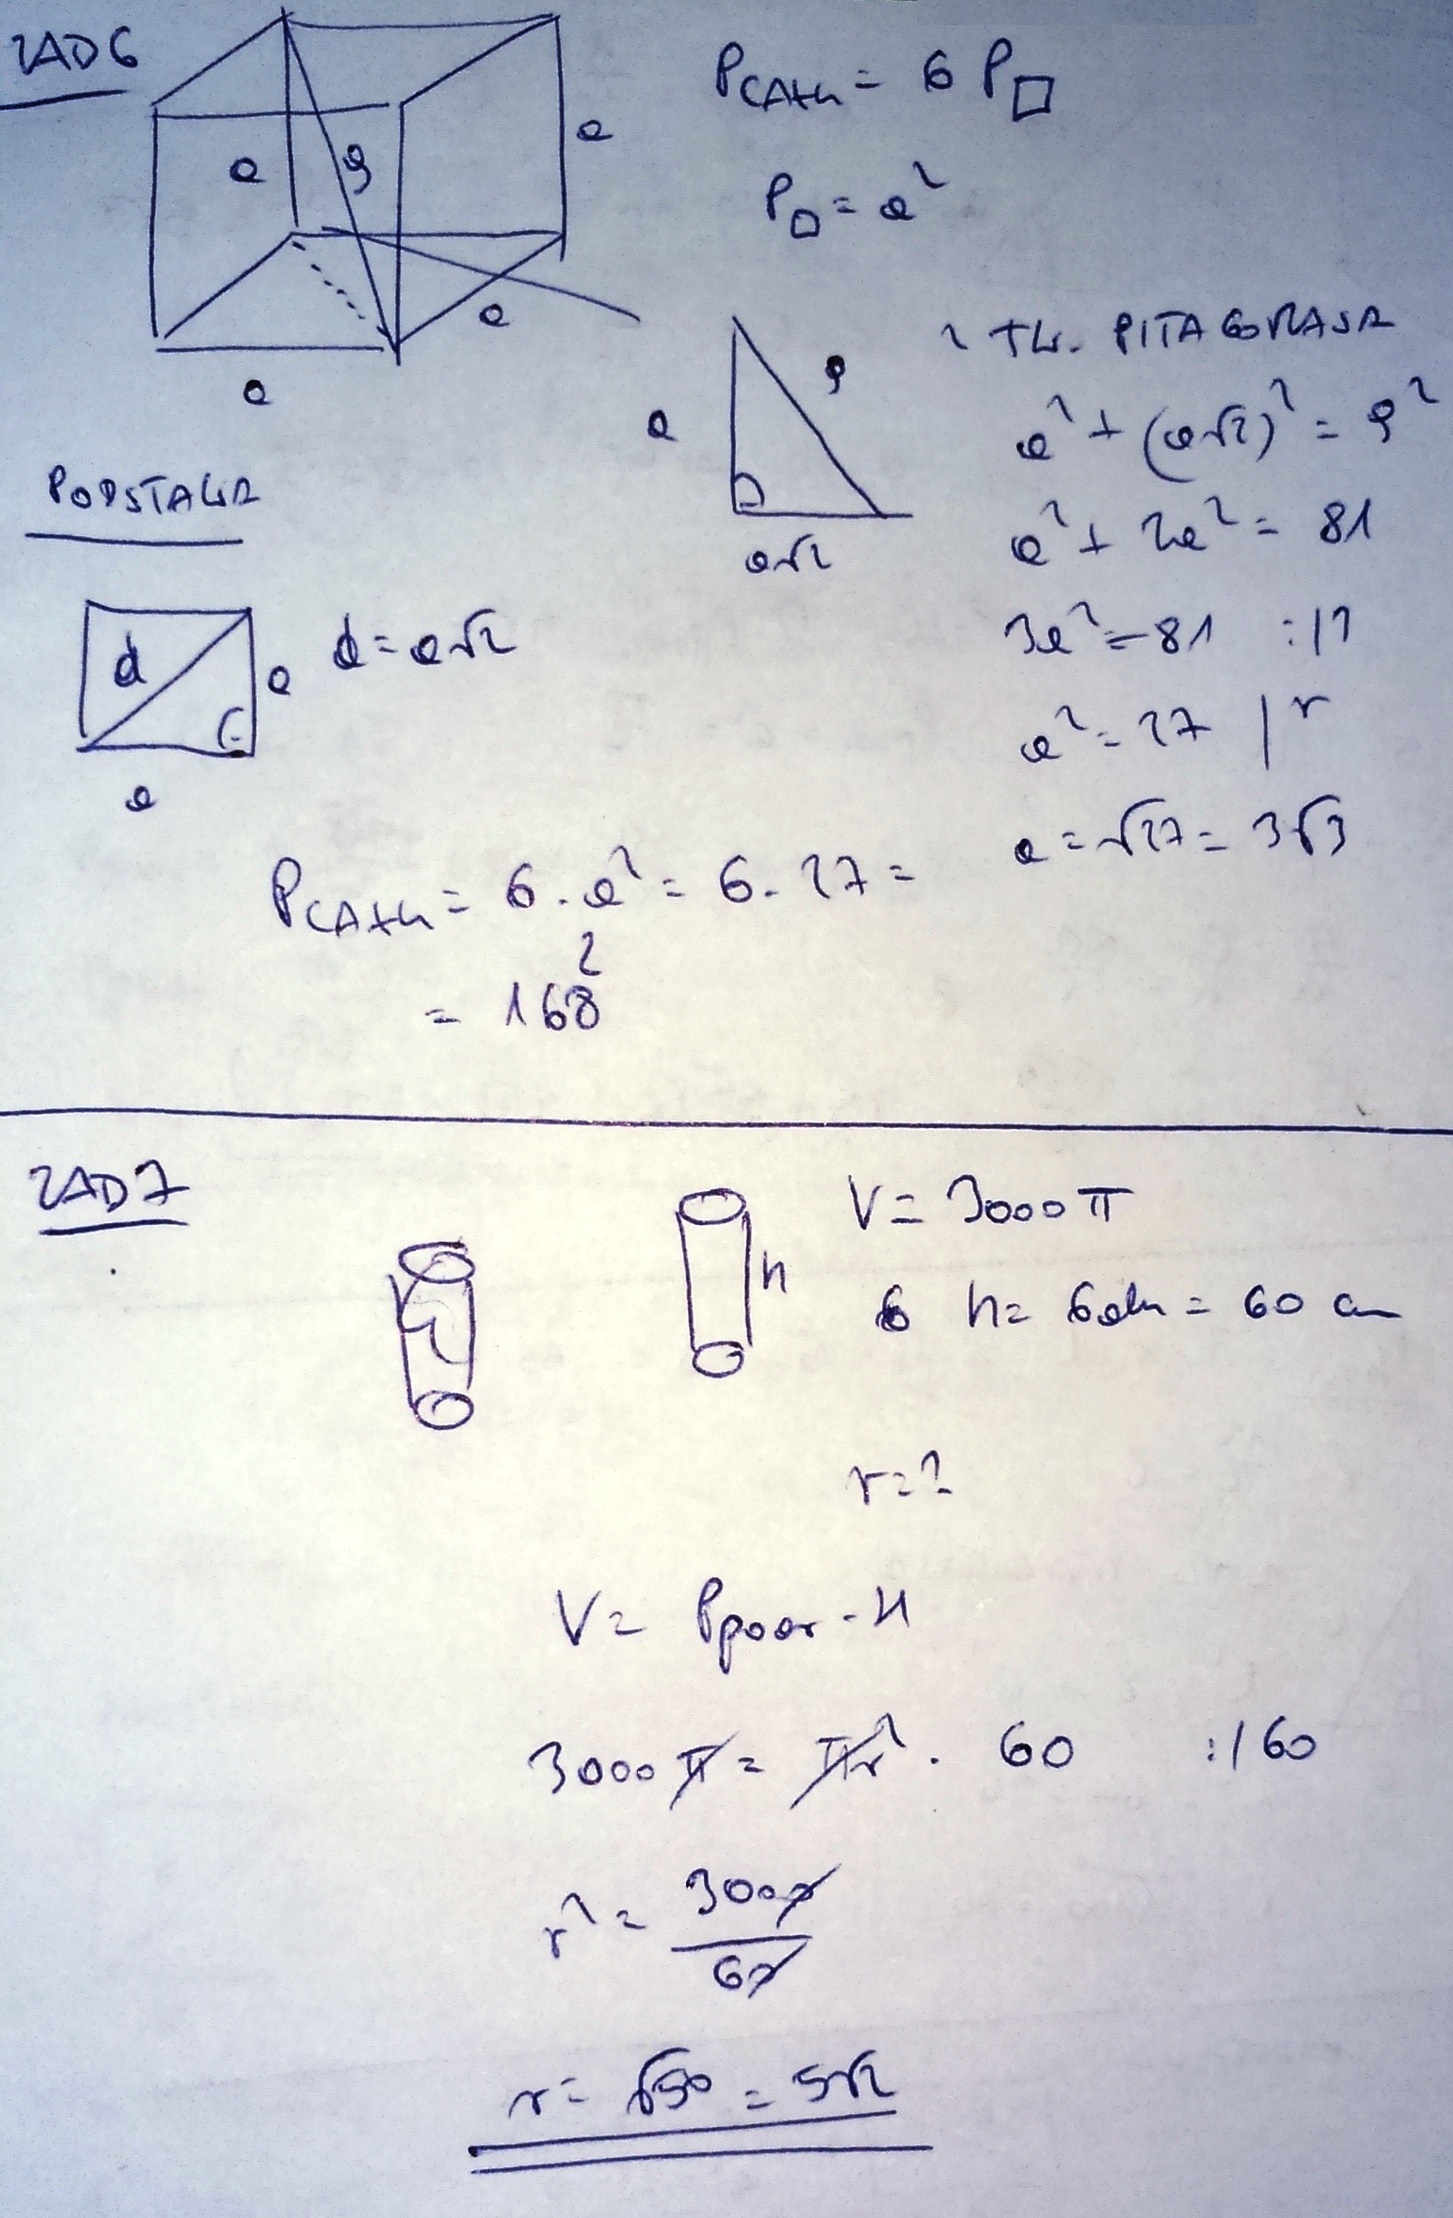 ZAD6
PCAŁK = 6 P□
P□ = a²
a
9
a
a
a
Z TW. PITAGORASA
a
9
a√2
a² + (a√2)² = 9²
a² + 2a² = 81
3a² = 81 :|3
a² = 27 |√
a = √27 = 3√3
PODSTAWA
d
a
a
d = a√2
PCAŁK = 6 · a² = 6 · 27 =
2
= 168
ZAD7
h
V = 3000π
6 h = 6dm = 60 cm
r = ?
V = Ppodst · H
3000π = πr² · 60 :|60
r² = 3000/60
r = √50 = 5√2